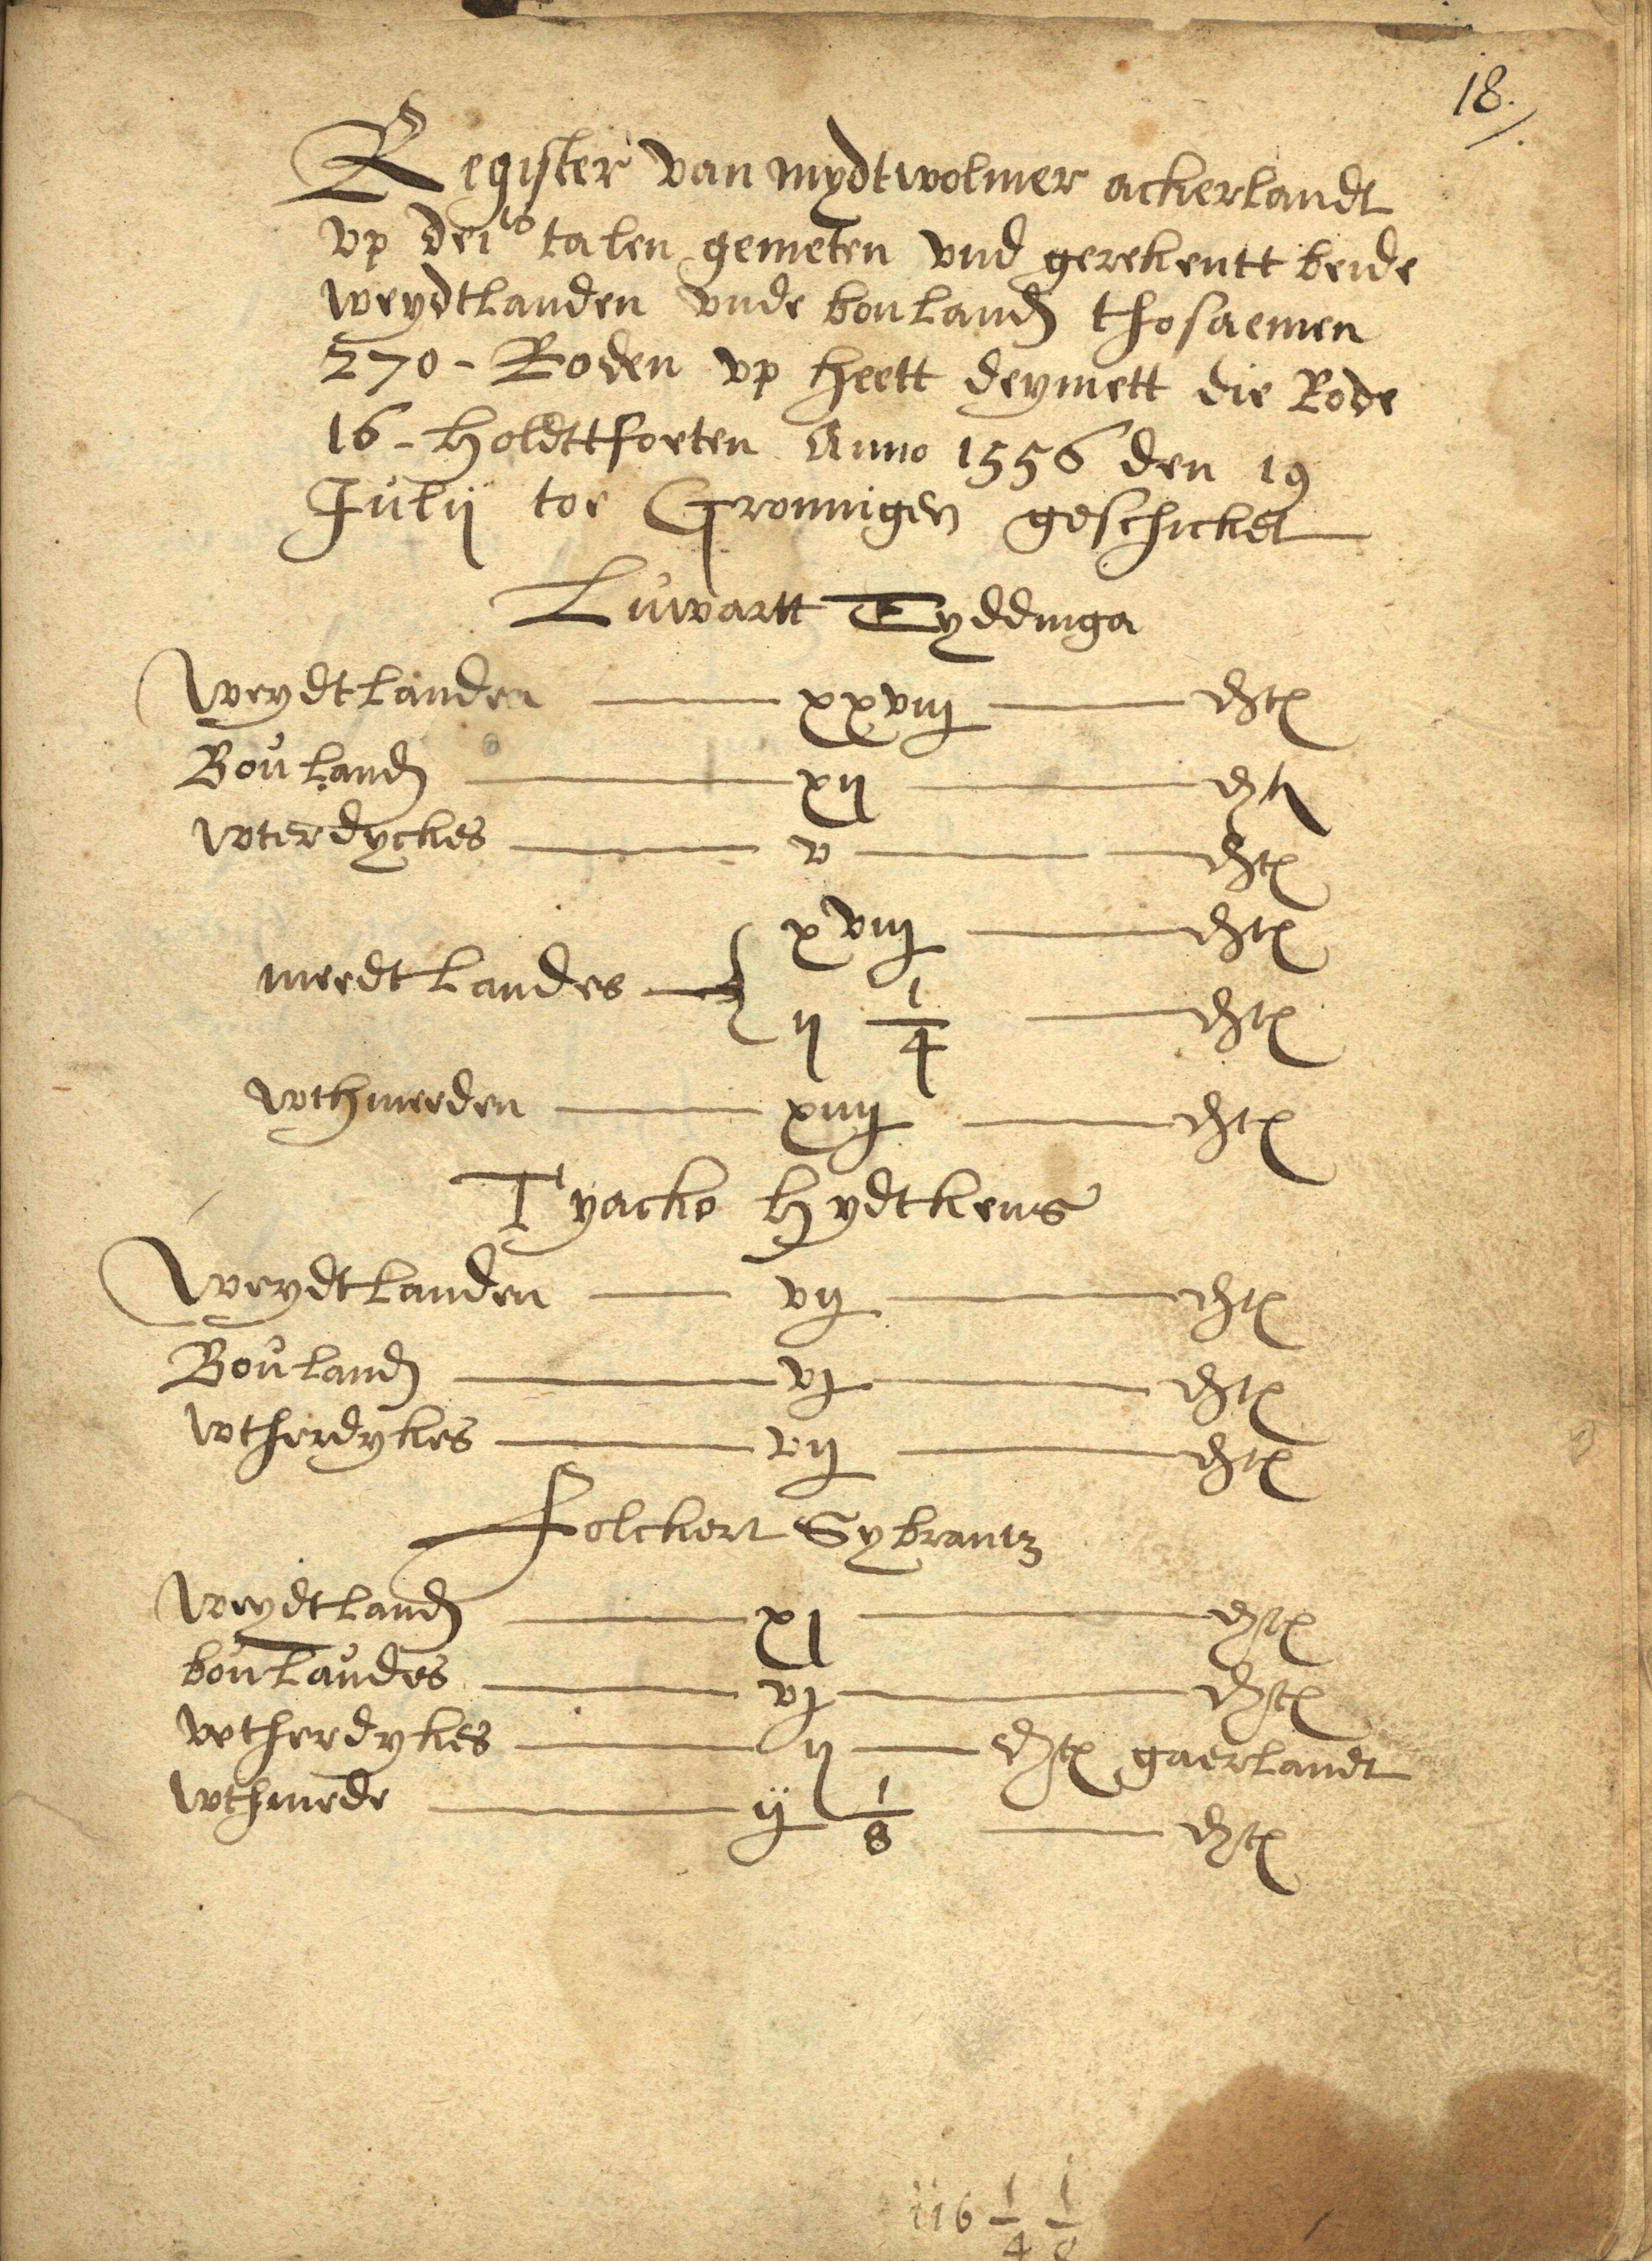 18.
Register van mydtwolmer ackerlandt
vp dei talen gemeten vnd gerekentt beide
weydtlanden vnde bouland thosaemen
270 - Roden vp heett deymett die Rode
16 - holdttfoeten Anno 1556 den 19
Julij toe Gronnigen geschicket
Luwartt Tyddinga
Weydtlanden — xxviij — dmt
Bouland — xij — dmt
wterdyckes — v — dmt
xviij — dmt
meedtlandes — ij 1/4 — dmt
wthmeeden — xiiij — dmt
Tyacko hydtkens
Weydtlanden — vij — dmt
Bouland — vj — dmt
wtherdykes — vij — dmt
Folckert Sybrantz
Weydtland — xj — dmt
boulandes — vj — dmt
wtherdykes — ij — dmt gaerlandt
wthmede — ij 1/8 — dmt
116 1/4 1/8